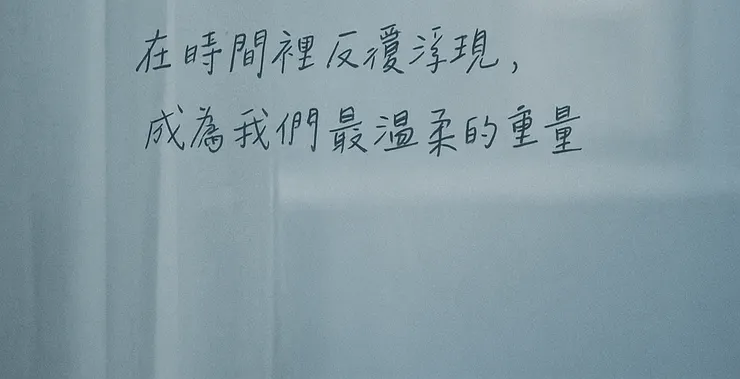 在時間裡反覆浮現，
成為我們最溫柔的重量